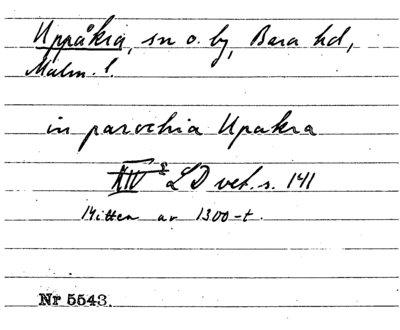 Uppåkra, sn o. by, Bara hd,
Malm. l.
in parochia Upakra
XIV 2 LD vet. s. 141
Mitten av 1300-t.
Nr 5543.